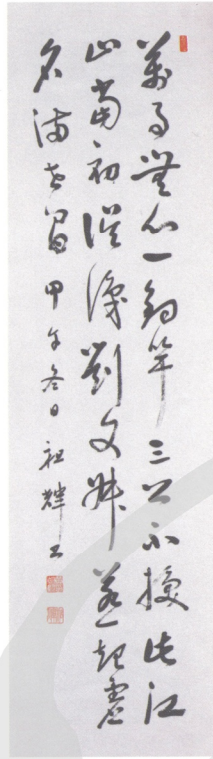 萬事無心一釣竿三公不換此江
山當初誤識劉文叔惹起虛
名滿世間甲午冬日祖輝